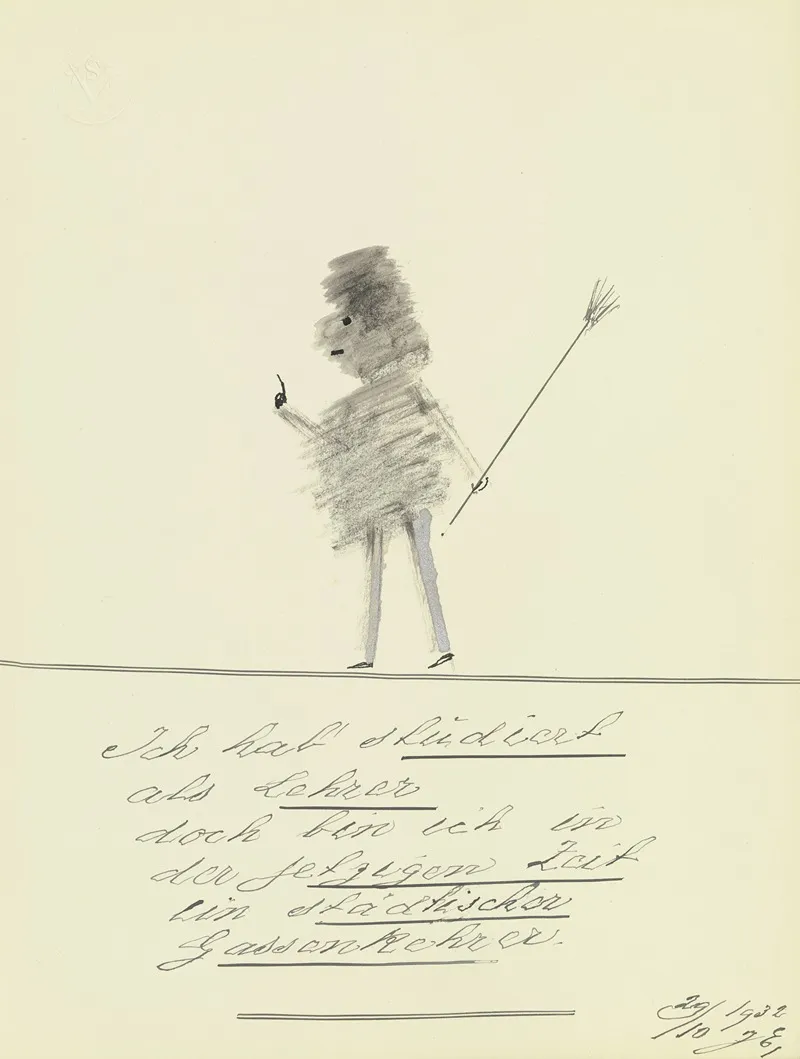 Ich hab' studiert
als Lehrer
doch bin ich in
der jetzigen Zeit
ein städtischer
Gassenkehrer.
29/10 1932